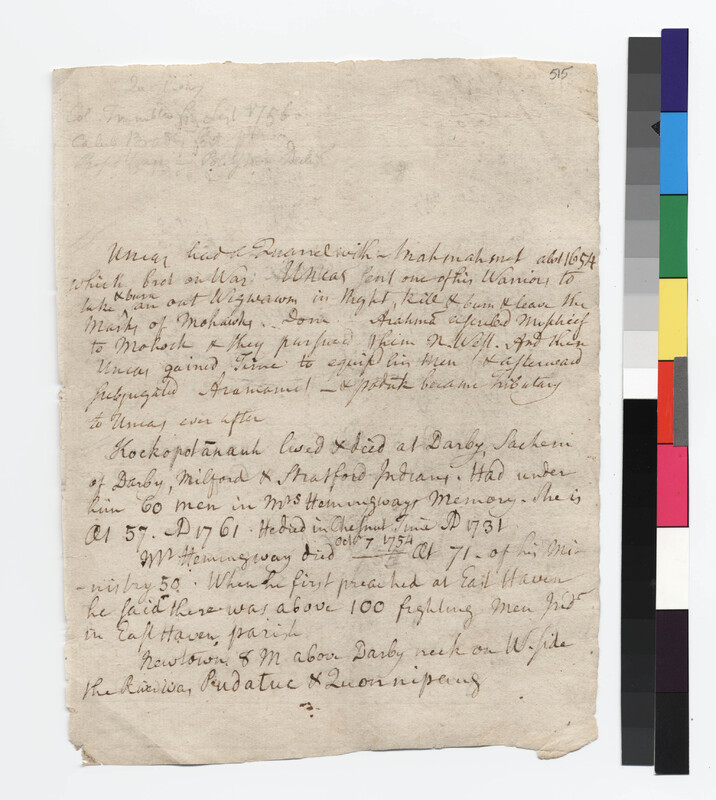 515
Col Trumble
Uncas had a Quarrel with Arahmahmet abot 1654
which brot on War. Uncas sent one of his Warriors to
take & burn an out Wigwawm in Night, kill & burn & leave the
Marks of Mohawks. Done. Arahma ascribed Mischief
to Mohock & they pursued them N. West. And then
Uncas gained Time to equip his Men & afterward
subjugated Aramamet & became tributary
to Uncas ever after
Kockopotanauh lived & died at Darby, Sachem
of Darby, Milford & Stratford Indians. Had under
him 60 men in Mrs Hemingways Memory. She is
Æt 57. AD 1761. He died in Chesnut Time AD 1731
Mr Hemingway died Octo 7 1754 Æt 71. of his Mi-
-nistry 50. When he first preached at East Haven
he said there was above 100 fighting Men Inds
in East Haven parish
Newtown 8 M above Darby neck on W. side
the River was Pudatuc & Quonnipaug